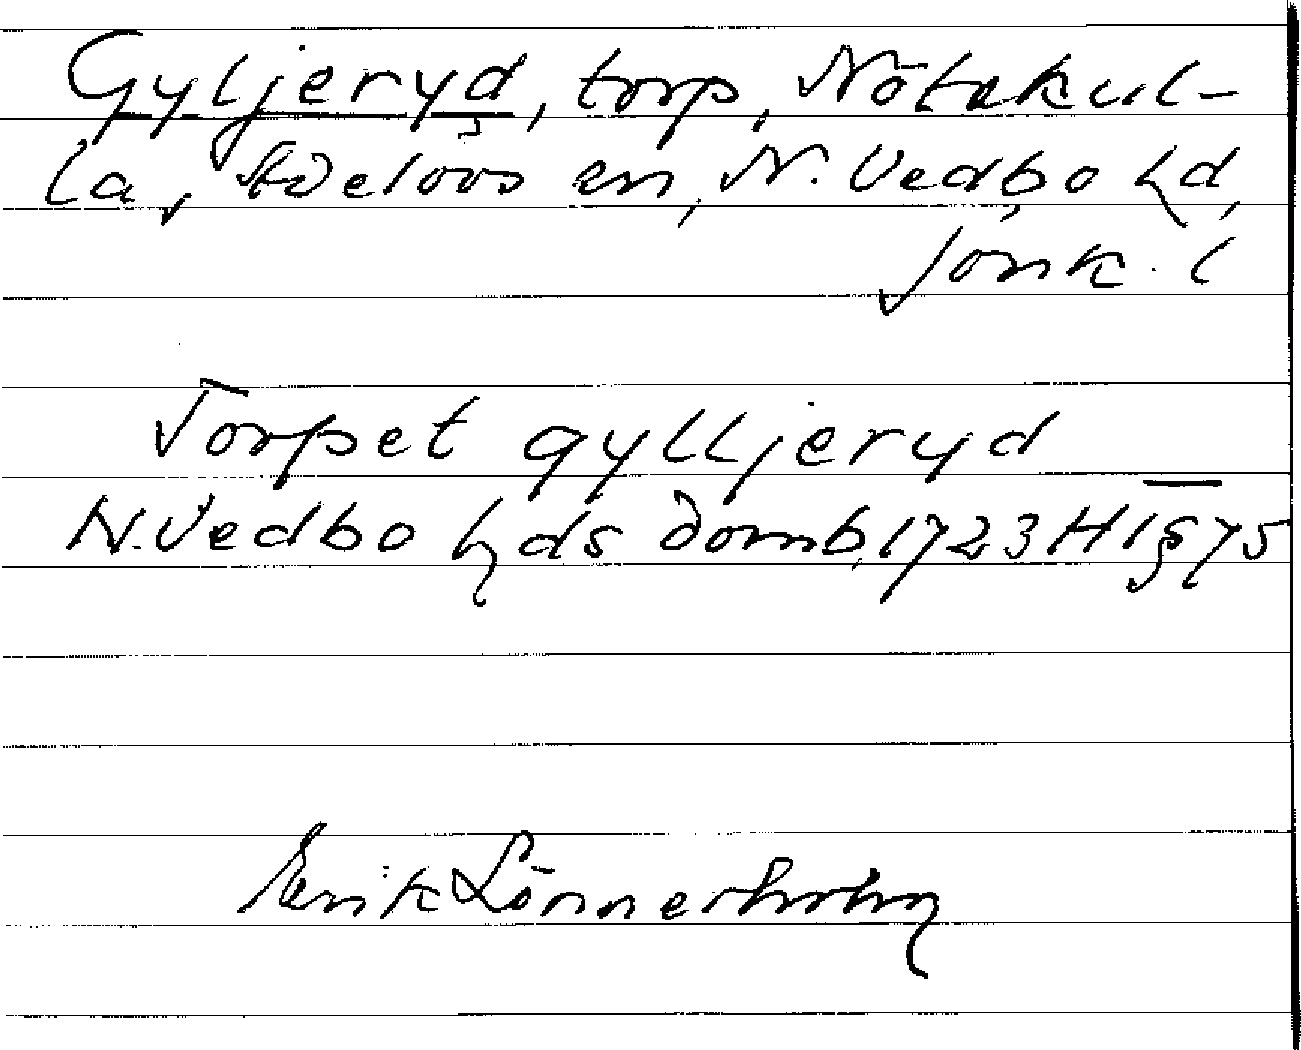 Gyljeryd, torp, Nötakul-
la, Adelövs sn, N. Vedbo hd,
Jönk. l
Torpet gylljeryd
N. Vedbo hds domb, 1723 H 1 § 75
Erik Lönnerholm